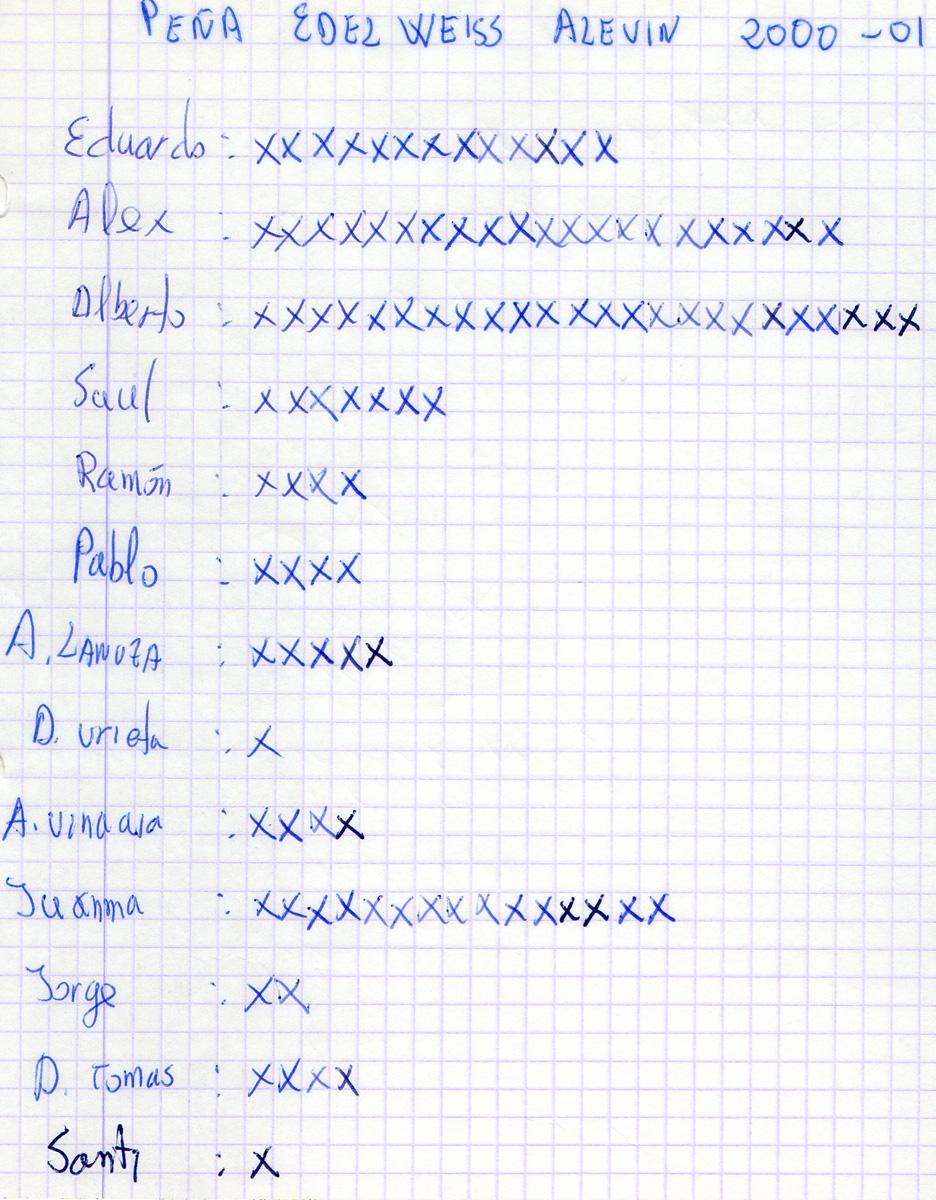 PEÑA EDELWEISS ALEVIN 2000-01
Eduardo : XXXXXXXXXXXXX
Alex : XXXXXXXXXXXXXXXXXXXXX
Alberto : XXXXXXXXXXXXXXXXXXXXXXXX
Saul : XXXXXXX
Ramón : XXXX
Pablo : XXXX
A. LANUZA : XXXXX
D. urieta : X
A. vindaia : XXXX
Juanma : XXXXXXXXXXXXXXX
Jorge : XX
D. Tomas : XXXX
Santi : X